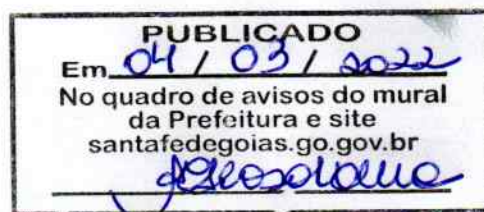 PUBLICADO
Em 04 / 03 / 2022
No quadro de avisos do mural
da Prefeitura e site
santafedegoias.go.gov.br